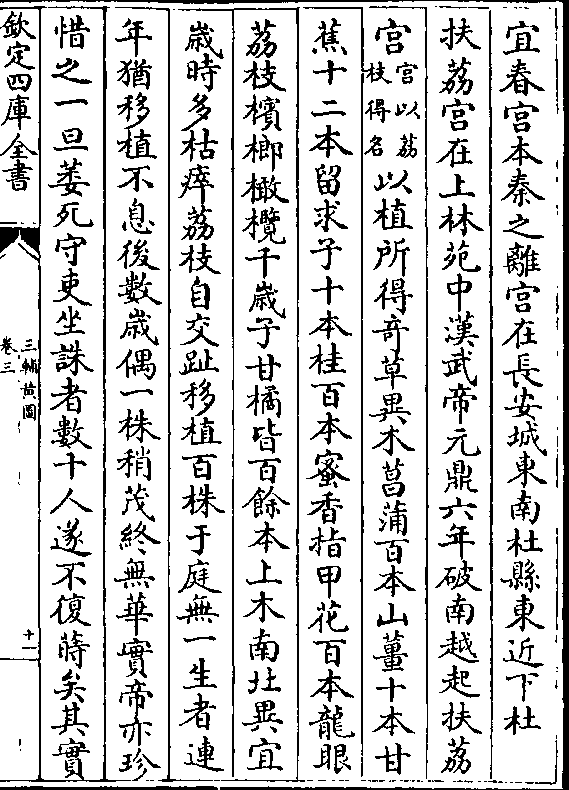 宜春宫本秦之離宫在長安城東南杜縣東近下杜
扶荔宫在上林苑中漢武帝元鼎六年破南越起扶荔
宫宫以荔枝得名以植所得奇草異木菖蒲百本山薑十本甘
蕉十二本留求子十本桂百本蜜香指甲花百本龍眼
荔枝檳榔橄欖千歲子甘橘皆百餘本上木南北異宜
歲時多枯瘁荔枝自交趾移植百株于庭無一生者連
年猶移植不息後數歲偶一株稍茂終無華實帝亦珍
惜之一旦萎死守吏坐誅者數十人遂不復蒔矣其實
欽定四庫全書
三輔黄圖
卷三
十一